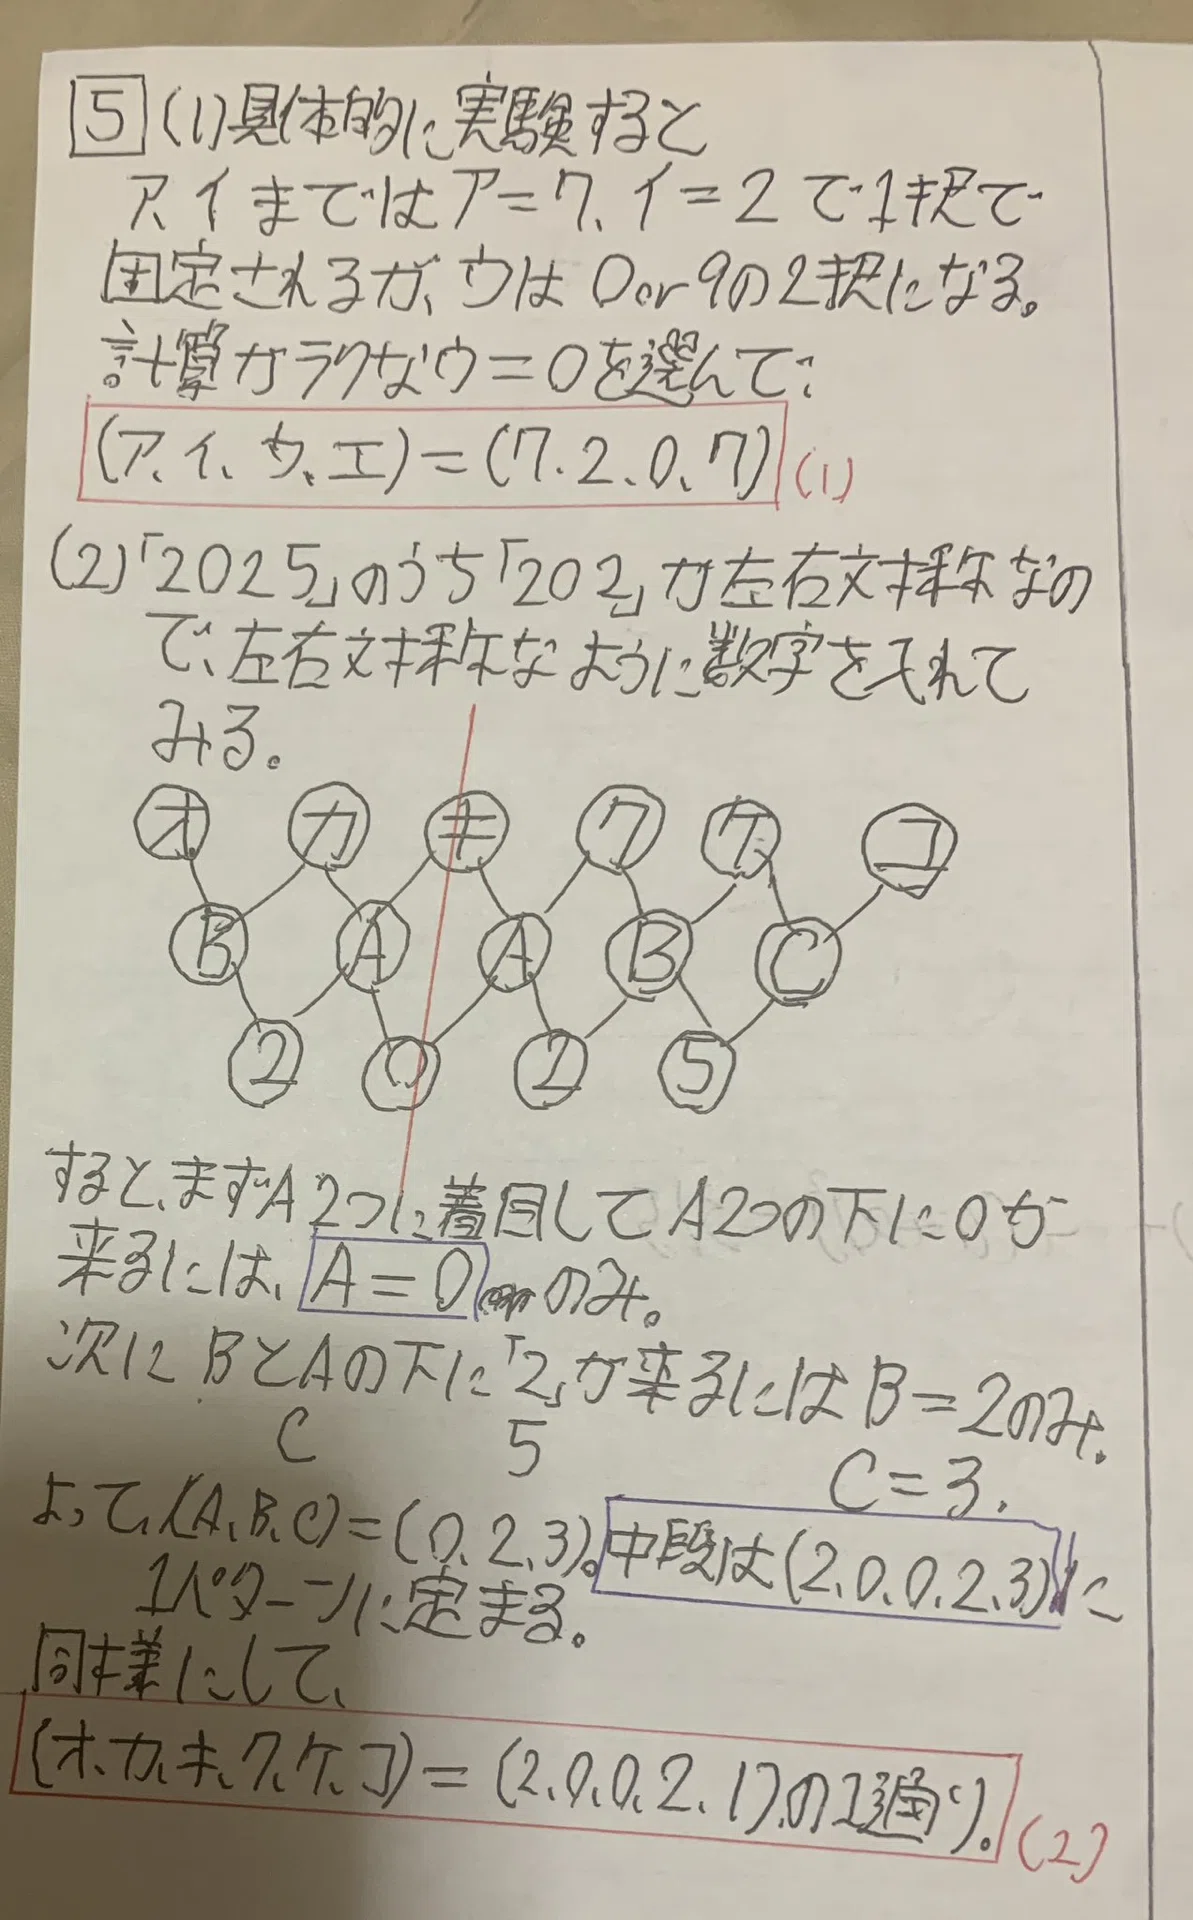 5 (1)具体的に実験すると
ア、イまではア=7、イ=2で1択で
固定されるが、ウは0or9の2択になる。
計算がラクなウ=0を選んで、
(ア、イ、ウ、エ)=(7.2.0.7) (1)
(2)「2025」のうち「202」が左右対称なの
で、左右対称なように数字を入れて
みる。
オ カ キ ク ケ コ
B A A B C
2 0 2 5
すると、まずA2つに着目してA2つの下に0が
来るには、A=0のみ。
次にBとAの下に「2」が来るにはB=2のみ.
C 5 C=3.
よって、(A、B、C)=(0、2、3)。中段は(2、0、0、2、3)に
1パターンに定まる。
同様にして、
(オ、カ、キ、ク、ケ、コ)=(2、0、0、2、1)、の1通り。 (2)